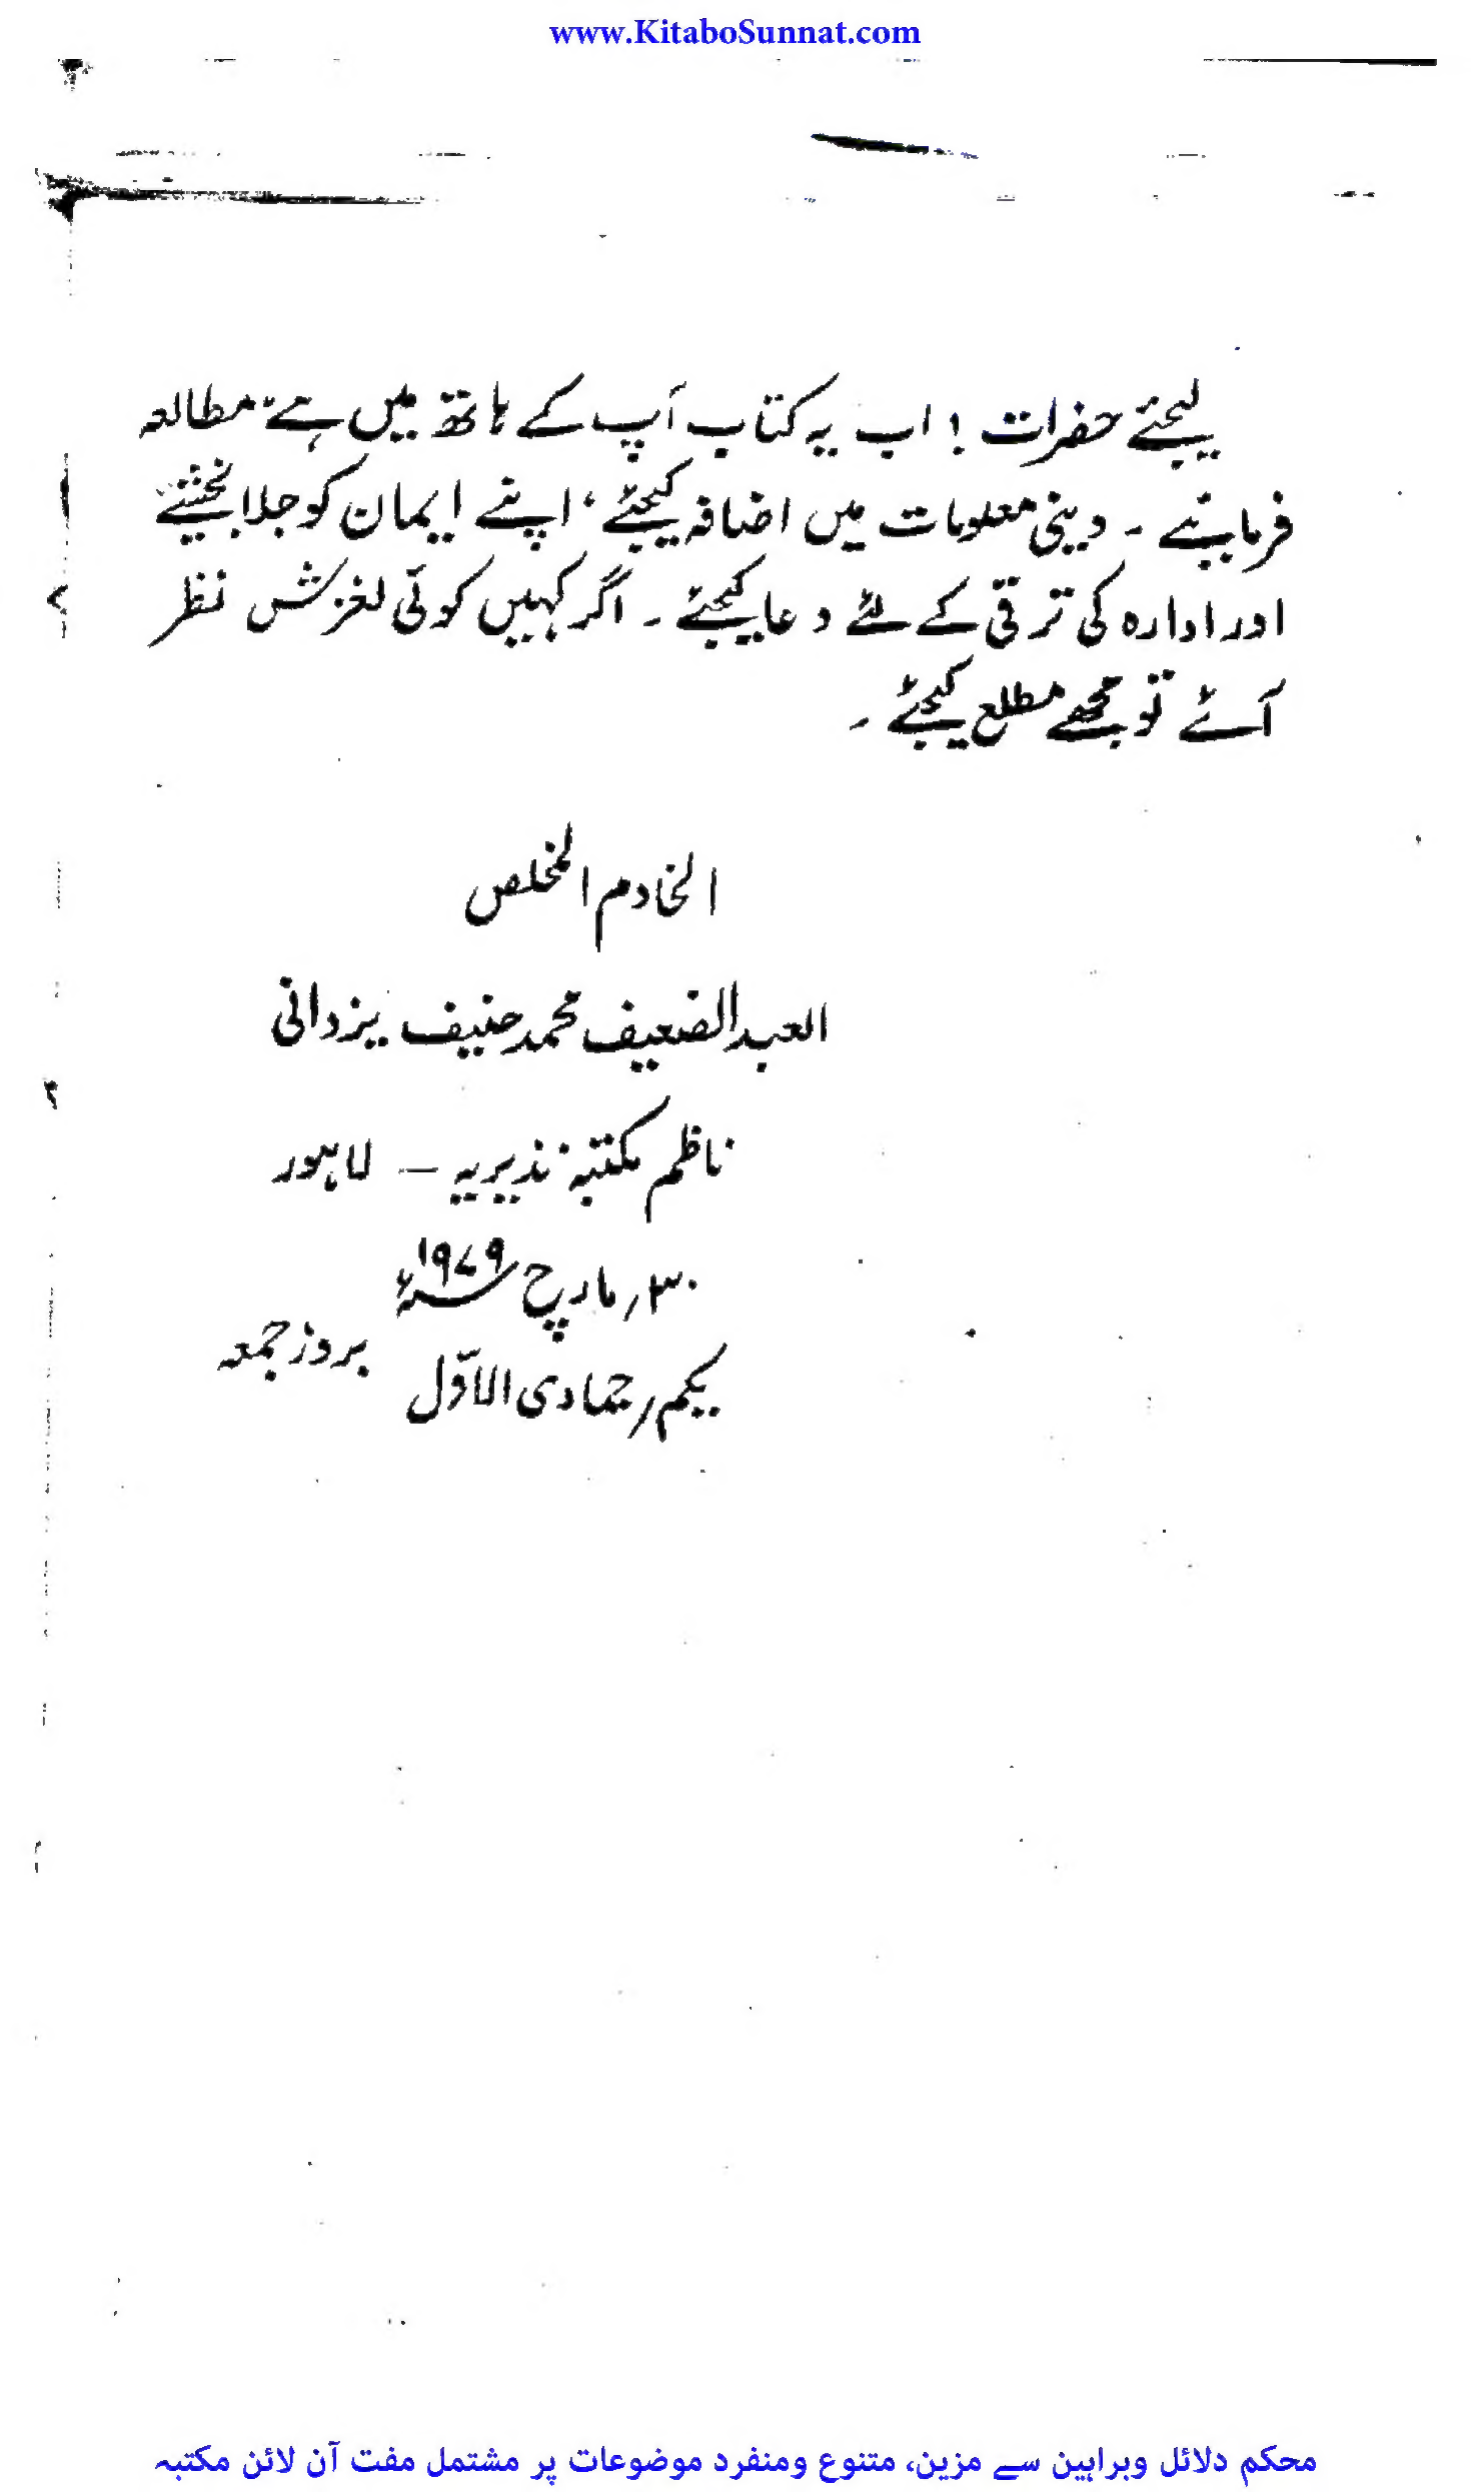 www.KitaboSunnat.com
لیجئے حضرات ! اب یہ کتاب آپ کے ہاتھ میں ہے، مطالعہ
فرمایئے ۔ دینی معلومات میں اضافہ کیجئے، اپنے ایمان کو جلا بخشئے
اور ادارہ کی ترقی کے لئے دعا کیجئے ۔ اگر کہیں کوئی لغزش نظر
آئے تو مجھے مطلع کیجئے ۔
الخادم المخلص
العبد الضعیف محمد حنیف یزدانی
ناظم مکتبہ نذیریہ – لاہور
۳۰/ مارچ ۱۹۷۹ء
یکم/ جمادی الاوّل بروز جمعہ
محکم دلائل وبراہین سے مزین، متنوع ومنفرد موضوعات پر مشتمل مفت آن لائن مکتبہ